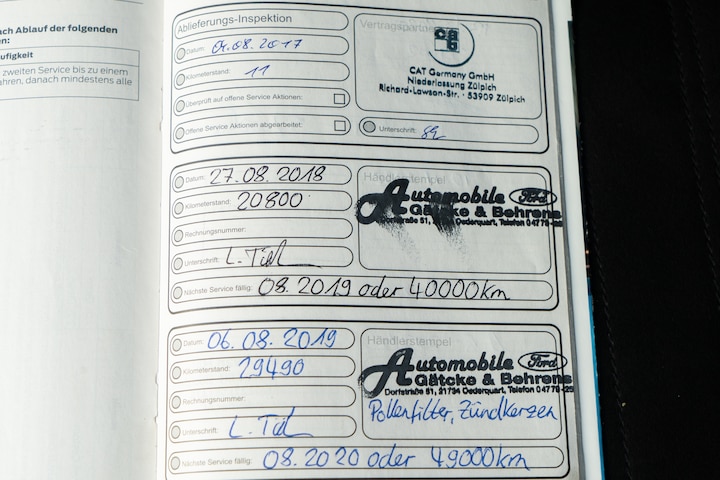 ach Ablauf der folgenden
en:
ufigkeit
zweiten Service bis zu einem
ahren, danach mindestens alle
Ablieferungs-Inspektion
Datum: 01.08.2017
Kilometerstand: 11
Überprüft auf offene Service Aktionen:
Offene Service Aktionen abgearbeitet:
Vertragspartner
cab
CAT Germany GmbH
Niederlassung Zülpich
Richard-Lawson-Str. · 53909 Zülpich
Unterschrift:
Datum: 27.08.2018
Kilometerstand: 20800
Rechnungsnummer:
Unterschrift:
Nächste Service fällig: 08.2019 oder 40000km
Händlerstempel
Automobile Ford
Gätcke & Behrens
Dorfstraße 51, Oederquart, Telefon 04779-
Datum: 06.08.2019
Kilometerstand: 29490
Rechnungsnummer:
Unterschrift:
Nächste Service fällig: 08.2020 oder 49000km
Händlerstempel
Automobile Ford
Gätcke & Behrens
Dorfstraße 51, 21734 Oederquart, Telefon 04779-
Pollenfilter, Zündkerzen